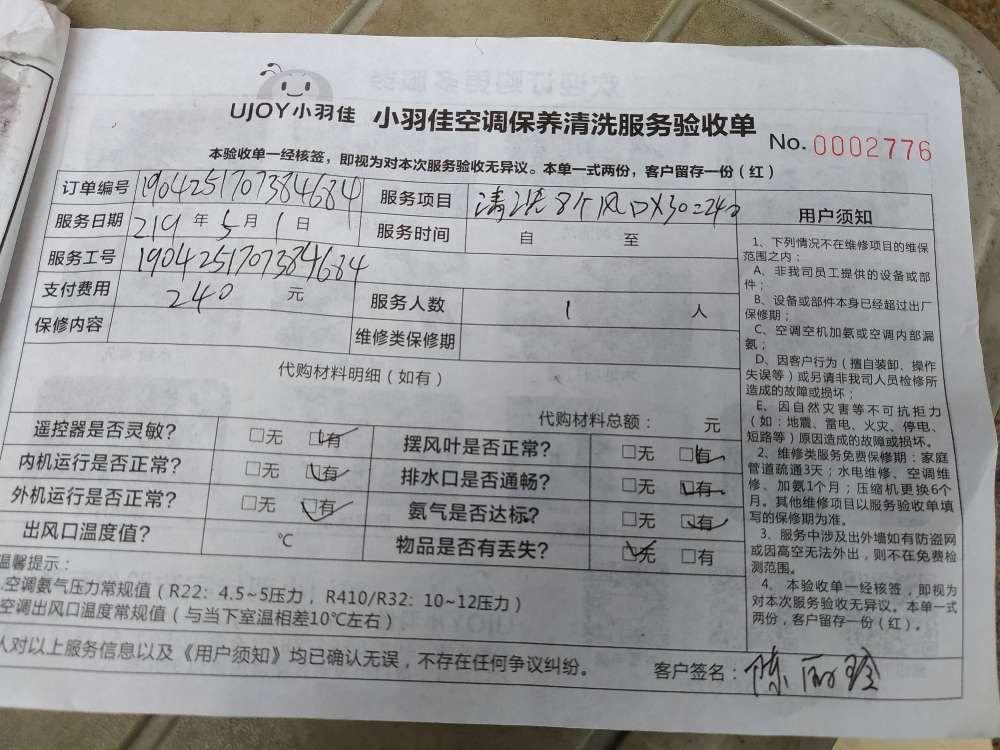 UJOY小羽佳 小羽佳空调保养清洗服务验收单
No. 0002776
本验收单一经核签，即视为对本次服务验收无异议。本单一式两份，客户留存一份（红）
订单编号 1904251707384684 服务项目 清洗8个风口X30=240
服务日期 219 年 5 月 1 日 服务时间 自 至
服务工号 1904251707384684
支付费用 240 元 服务人数 1 人
保修内容 维修类保修期
代购材料明细（如有）
代购材料总额： 元
遥控器是否灵敏？ □无 □有 摆风叶是否正常？ □无 □有
内机运行是否正常？ □无 □有 排水口是否通畅？ □无 □有
外机运行是否正常？ □无 □有 氨气是否达标？ □无 □有
出风口温度值？ ℃ 物品是否有丢失？ □无 □有
温馨提示：
.空调氨气压力常规值（R22：4.5~5压力，R410/R32：10~12压力）
空调出风口温度常规值（与当下室温相差10℃左右）
人对以上服务信息以及《用户须知》均已确认无误，不存在任何争议纠纷。
客户签名：陈丽玲
用户须知
1、下列情况不在维修项目的维保
范围之内：
A、非我司员工提供的设备或部
件；
B、设备或部件本身已经超过出厂
保修期；
C、空调空机加氨或空调内部漏
氨；
D、因客户行为（擅自装卸、操作
失误等）或另请非我司人员检修所
造成的故障或损坏；
E、因自然灾害等不可抗拒力
（如：地震、雷电、火灾、停电、
短路等）原因造成的故障或损坏。
2、维修类服务免费保修期：家庭
管道疏通3天；水电维修、空调维
修、加氨1个月；压缩机更换6个
月。其他维修项目以服务验收单填
写的保修期为准。
3、服务中涉及出外墙如有防盗网
或因高空无法外出，则不在免费检
测范围。
4、本验收单一经核签，即视为
对本次服务验收无异议。本单一式
两份，客户留存一份（红）。